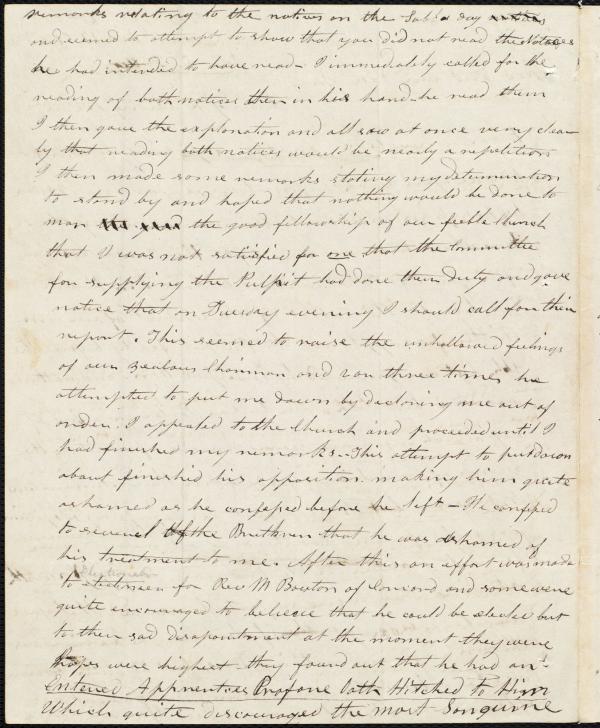 remarks relating to the notices on the Sabb. day
and seemed to attempt to show that you did not read the Notices
he had intended to have read - I immediately called for the
reading of both notices then in his hand - he read them
I then gave the explanation and all saw at once very clear-
ly that reading both notices would be nearly a repetition
I then made some remarks stating my determination
to stand by and hoped that nothing would be done to
mar the good fellowship of our feeble Church
that I was not satisfied for one that the Committe
for supplying the Pulpit had done their Duty and gave
notice that on Tuesday evening I should call for their
report. This seemed to raise the unhallowed feelings
of our zealous Chairman and 2 or three times he
attempted to put me down by declaring me out of
order. I appealed to the Church and proceeded until I
had finished my remarks. - This attempt to put down
about finished his opposition making him quite
ashamed as he confessed before he left - He confessed
to several of the Brethren that he was ashamed of
his treatment to me. After this an effort was made
to for Rev M Bouton of Concord and some were
quite encouraged to believe that he could be elected but
to their sad disapointment at the moment they were
hopes were highest - they found out that he had an
Entered Apprentices Profane Oath Hitched to Him
Which quite discouraged the most Sanguine